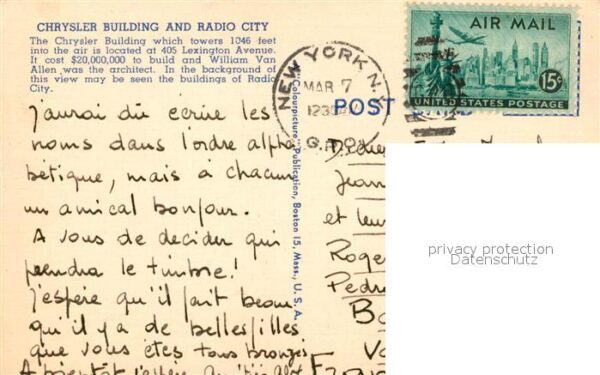 CHRYSLER BUILDING AND RADIO CITY
The Chrysler Building which towers 1046 feet
into the air is located at 405 Lexington Avenue.
It cost $20,000,000 to build and William Van
Allen was the architect. In the background of
this view may be seen the buildings of Radio
City.
J'aurai dû écrire les
noms dans l'ordre alpha
bétique, mais à chacun
un amical bonjour.
A vous de décider qui
prendra le timbre!
J'espère qu'il fait beau
qu'il y a de belles filles
que vous êtes tous bronzés
A bientôt j'espère
Colourpicture Publication, Boston 15, Mass., U.S.A.
NEW YORK, N.
MAR 7
G.P.O.
POST
AIR MAIL
15¢
UNITED STATES POSTAGE
Jean
et leu
Roge
Pedr
Ba
Va
Fran
privacy protection
Datenschutz